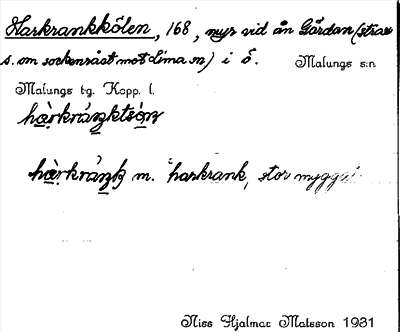 Harkrankkölen, 168, myr vid ån Gårdan (strax
s. om sockenråst mot Lima sn) i ö. Malungs s:n
Malungs tg. Kopp. l.
m. harkrank, stor mygga
Niss Hjalmar Matsson 1931